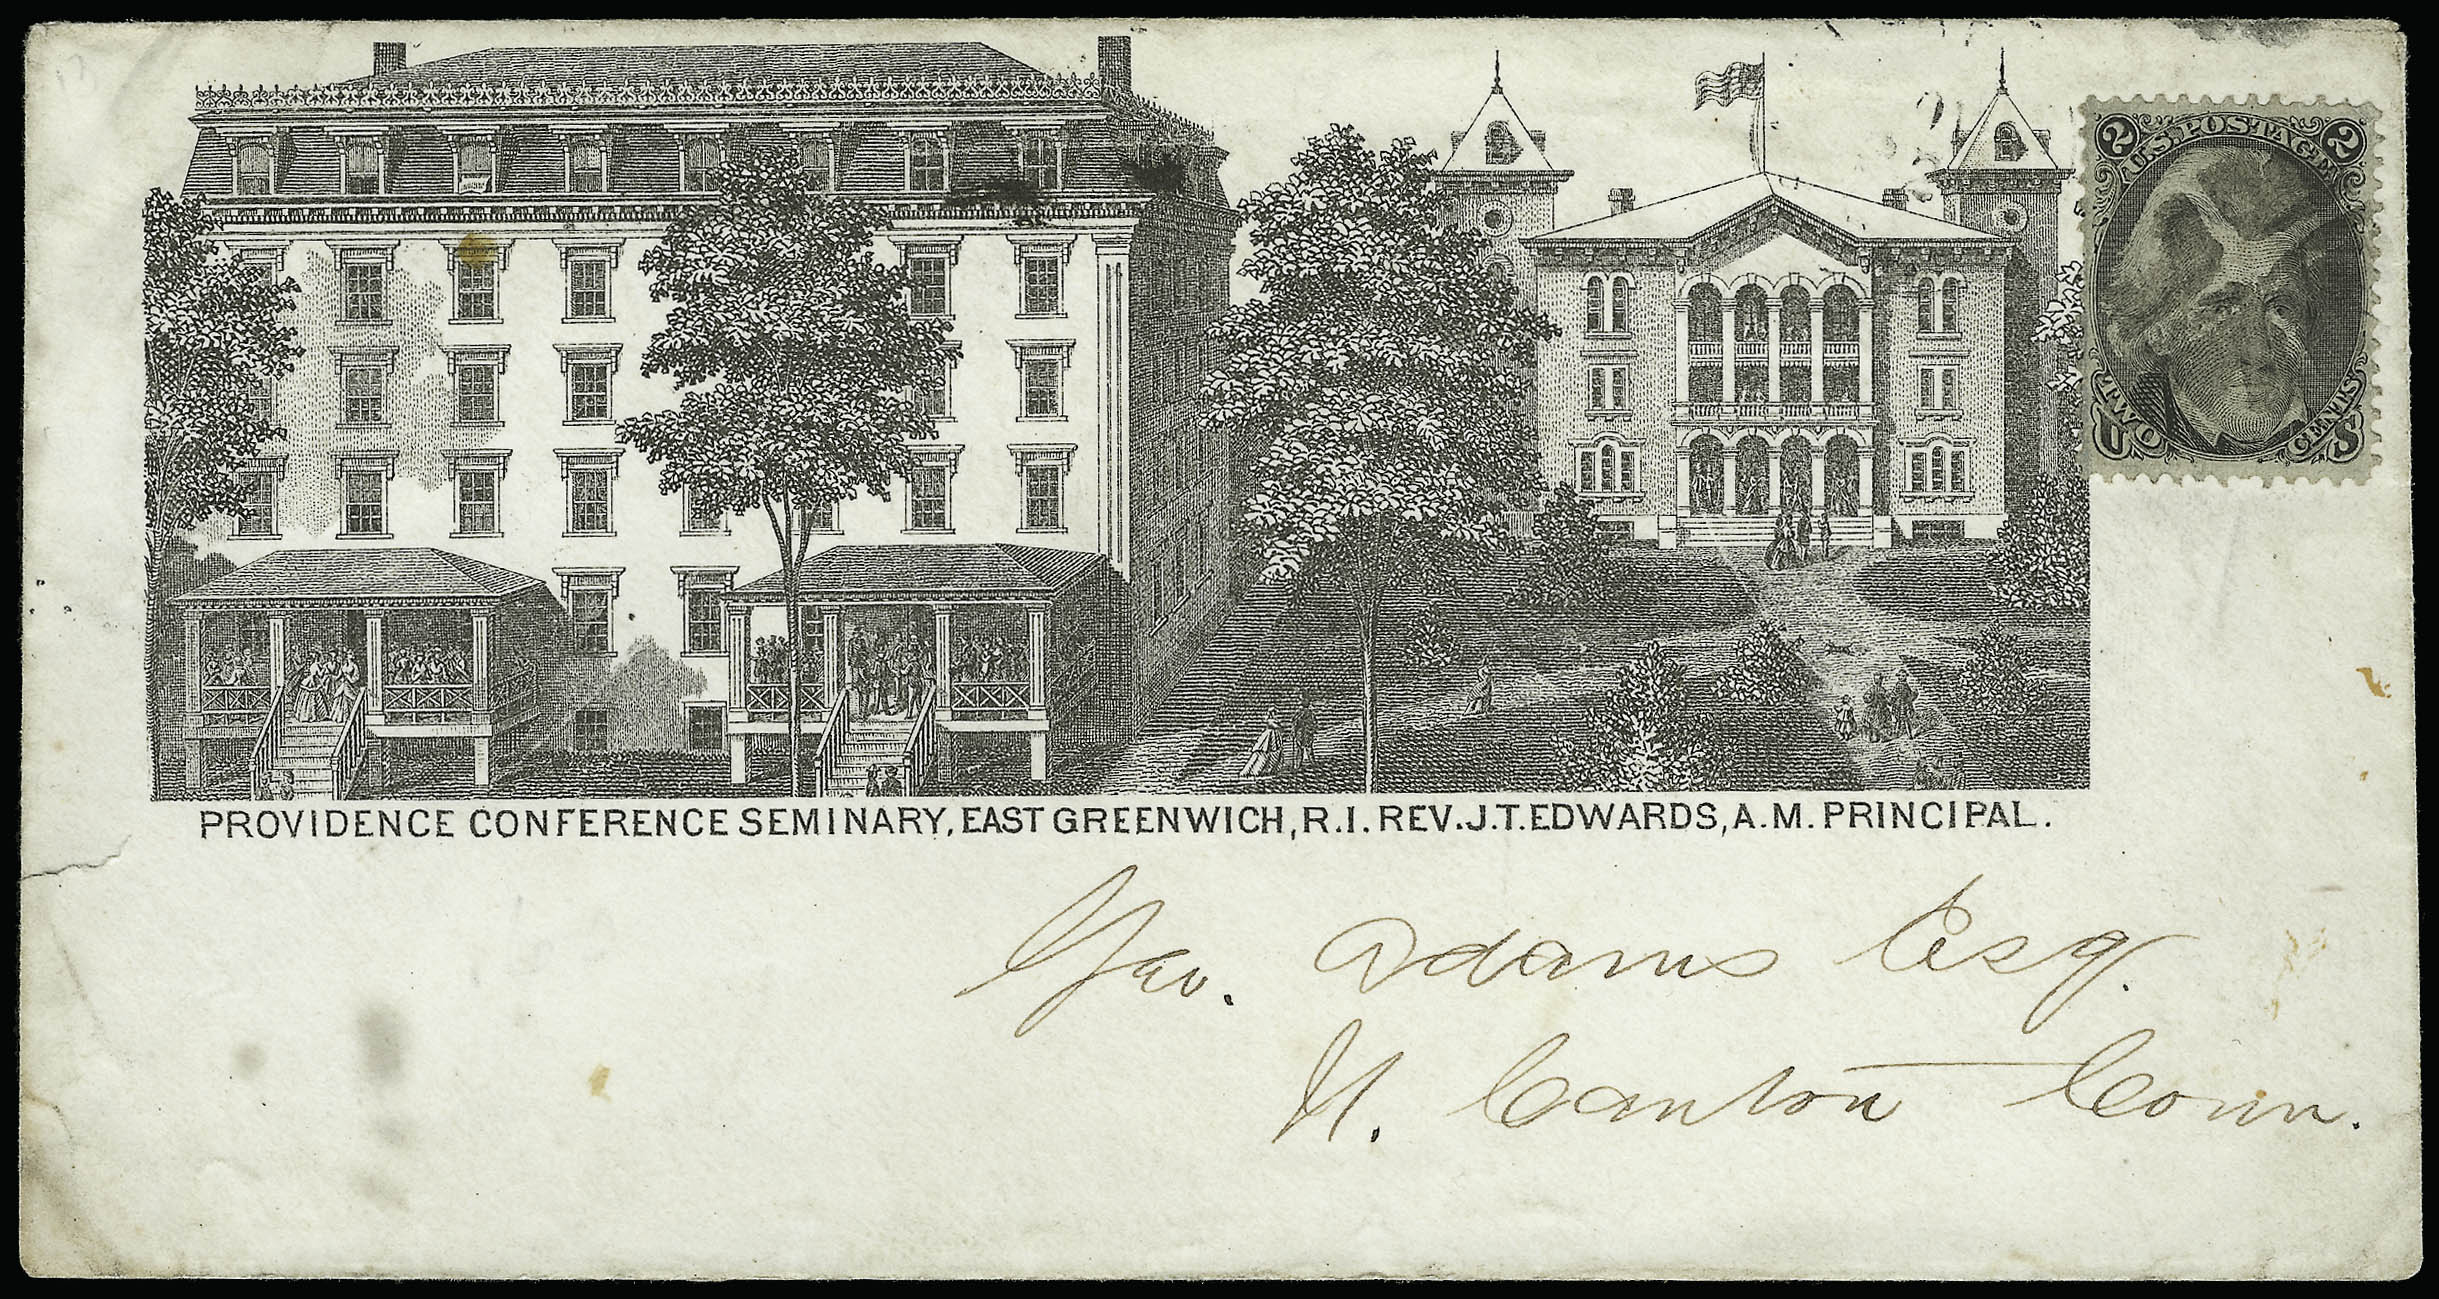 2 U.S. POSTAGE 2
TWO CENTS
U S
PROVIDENCE CONFERENCE SEMINARY, EAST GREENWICH, R.I. REV. J.T. EDWARDS, A.M. PRINCIPAL.
Geo. Adams Esq.
N. Canton Conn.